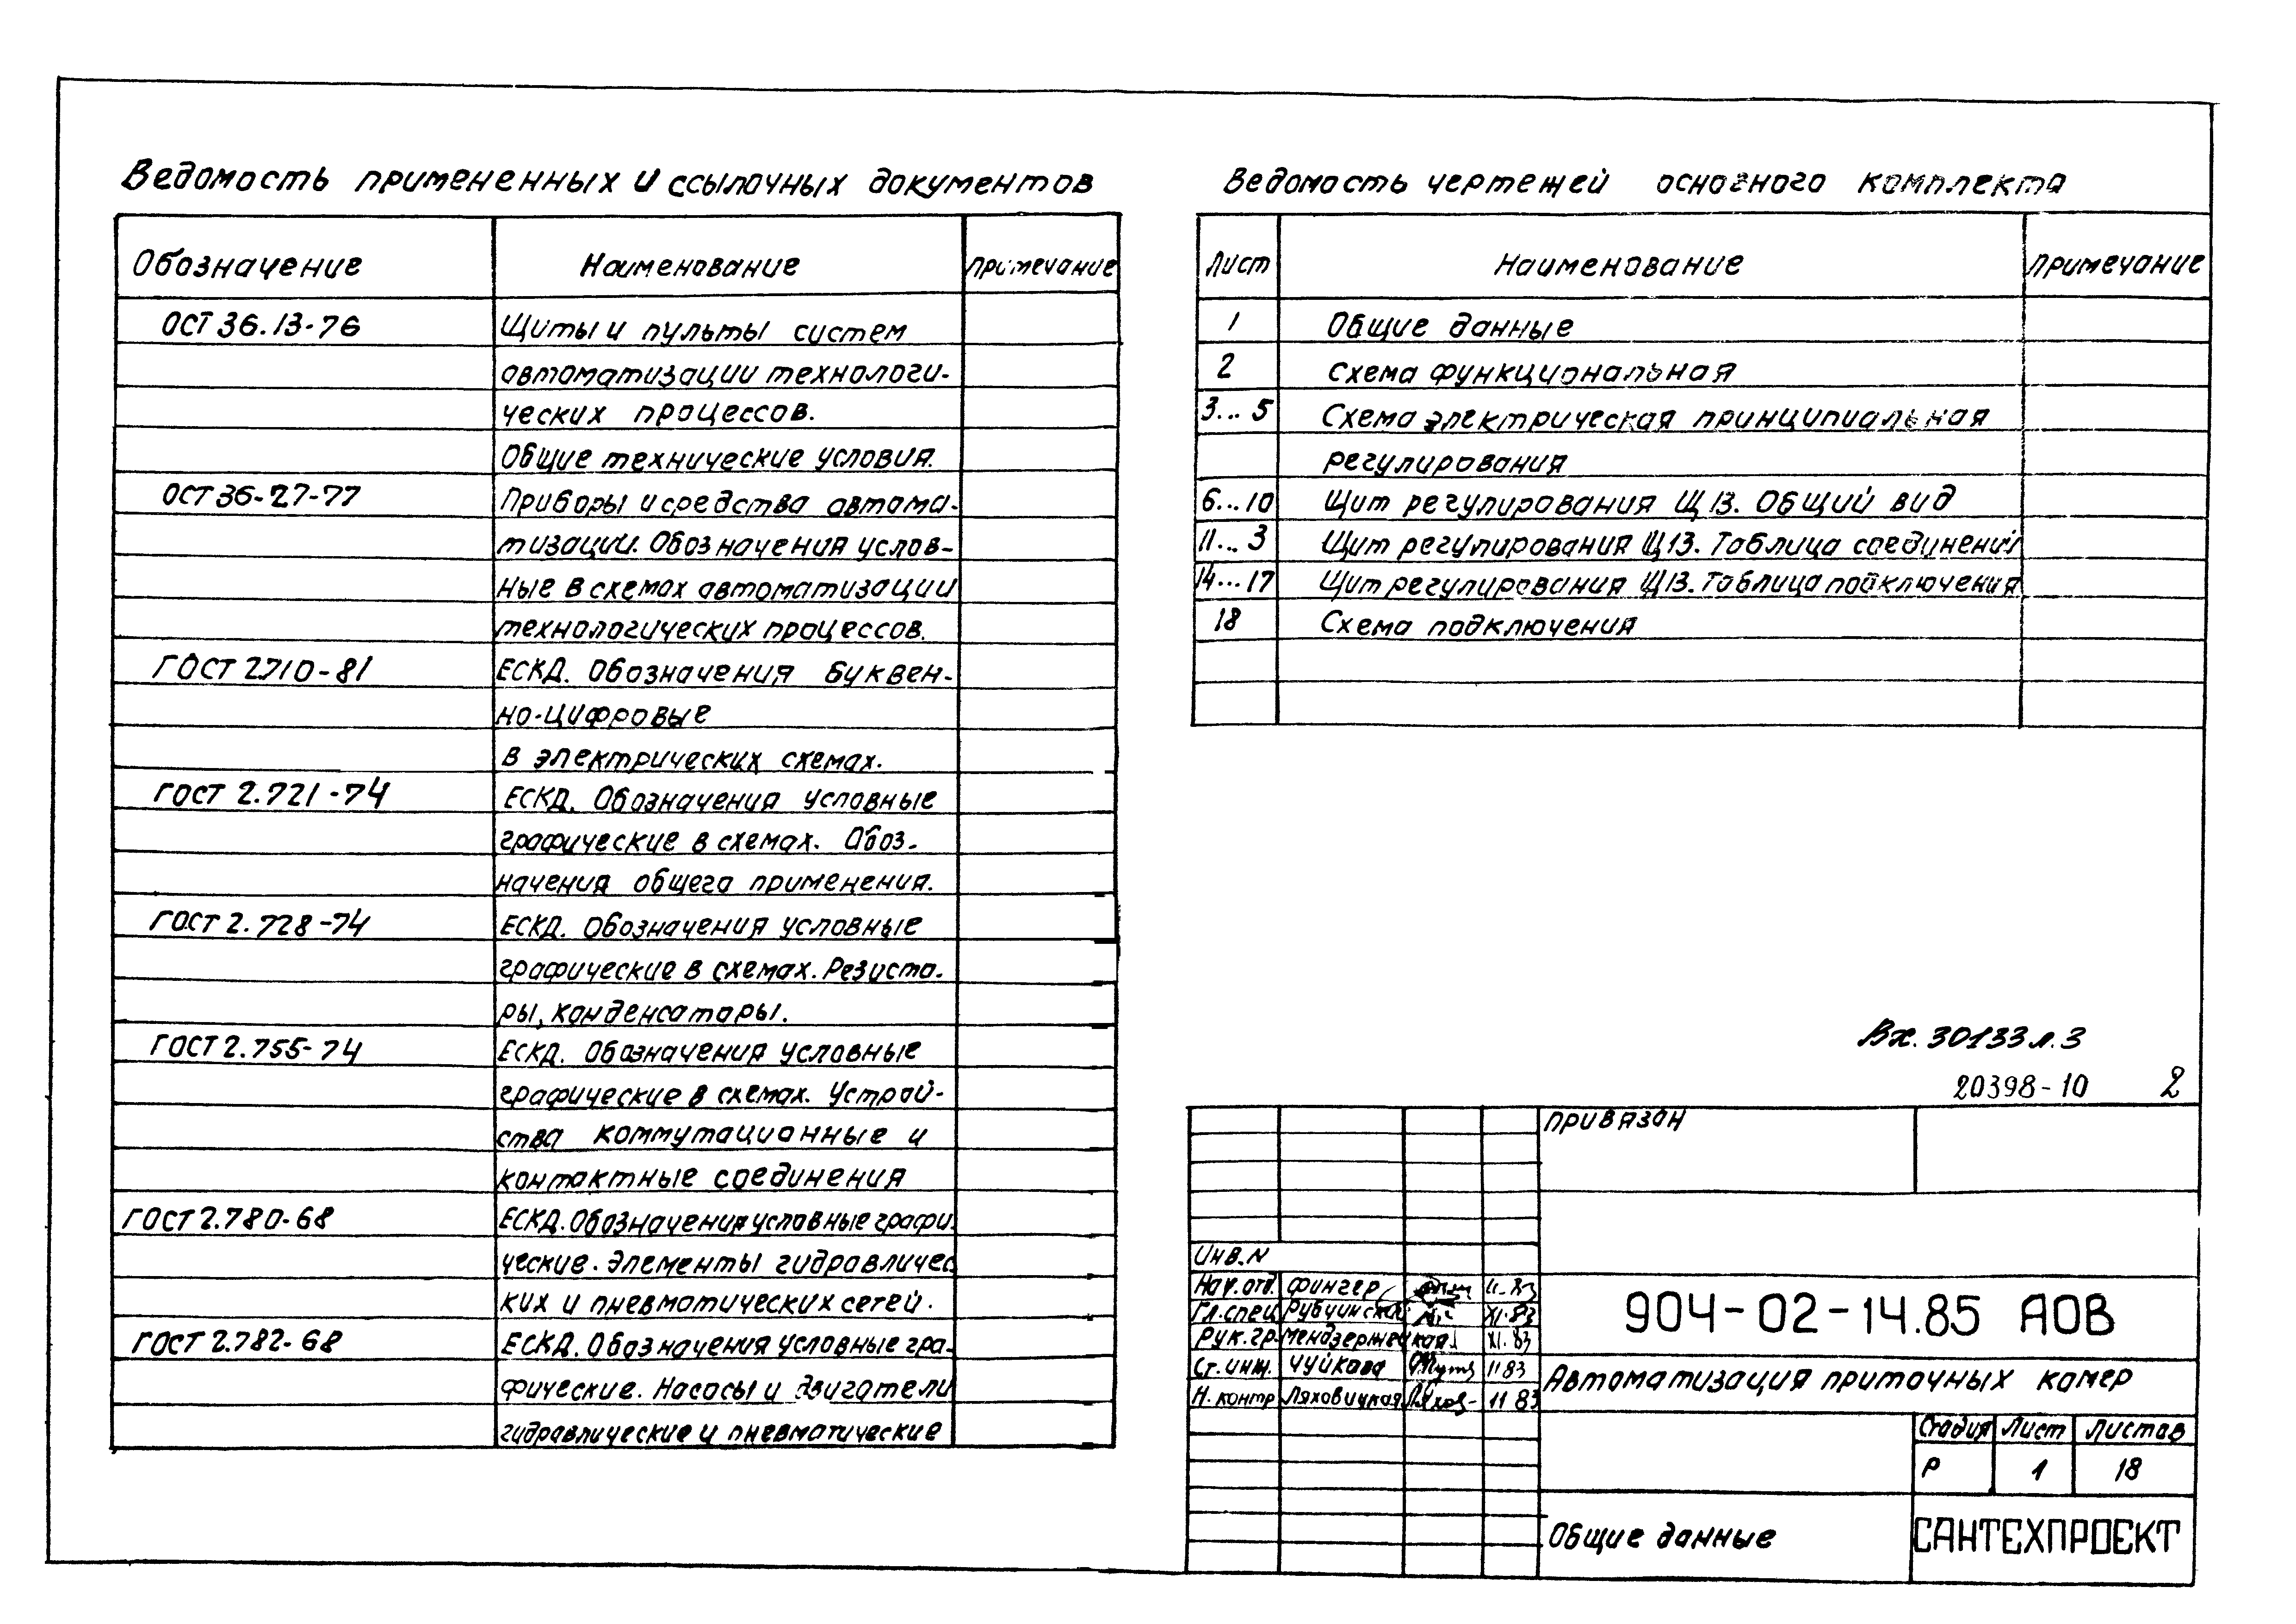 Ведомость примененных и ссылочных документов
Обозначение Наименование Примечание
ОСТ 36.13-76 Щиты и пульты систем
автоматизации технологи-
ческих процессов.
Общие технические условия.
ОСТ 36-27-77 Приборы и средства автома-
тизации. Обозначения услов-
ные в схемах автоматизации
технологических процессов.
ГОСТ 2.710-81 ЕСКД. Обозначения буквен-
но-цифровые
в электрических схемах.
ГОСТ 2.721-74 ЕСКД. Обозначения условные
графические в схемах. Обоз-
начения общего применения.
ГОСТ 2.728-74 ЕСКД. Обозначения условные
графические в схемах. Резисто-
ры, конденсаторы.
ГОСТ 2.755-74 ЕСКД. Обозначения условные
графические в схемах. Устрой-
ства коммутационные и
контактные соединения
ГОСТ 2.780-68 ЕСКД. Обозначения условные графи-
ческие. Элементы гидравличес
ких и пневматических сетей.
ГОСТ 2.782-68 ЕСКД. Обозначения условные гра-
фические. Насосы и двигатели
гидравлические и пневматические
Ведомость чертежей основного комплекта
Лист Наименование Примечание
1 Общие данные
2 Схема функциональная
3...5 Схема электрическая принципиальная
регулирования
6...10 Щит регулирования Щ13. Общий вид
11...3 Щит регулирования Щ13. Таблица соединений
14...17 Щит регулирования Щ13. Таблица подключения
18 Схема подключения
Вх. 30133 л.3
20398-10 2
Привязан
Инв.N
Нач.отд. Фингер
Гл.спец Рубчинский XI.83
Рук.гр. Мендзержецкая XI.83
Ст.инж. Чуйкова 11 83
Н.контр Ляховицкая 11 83
904-02-14.85 АОВ
Автоматизация приточных камер
Стадия Лист Листов
Р 1 18
Общие данные
САНТЕХПРОЕКТ